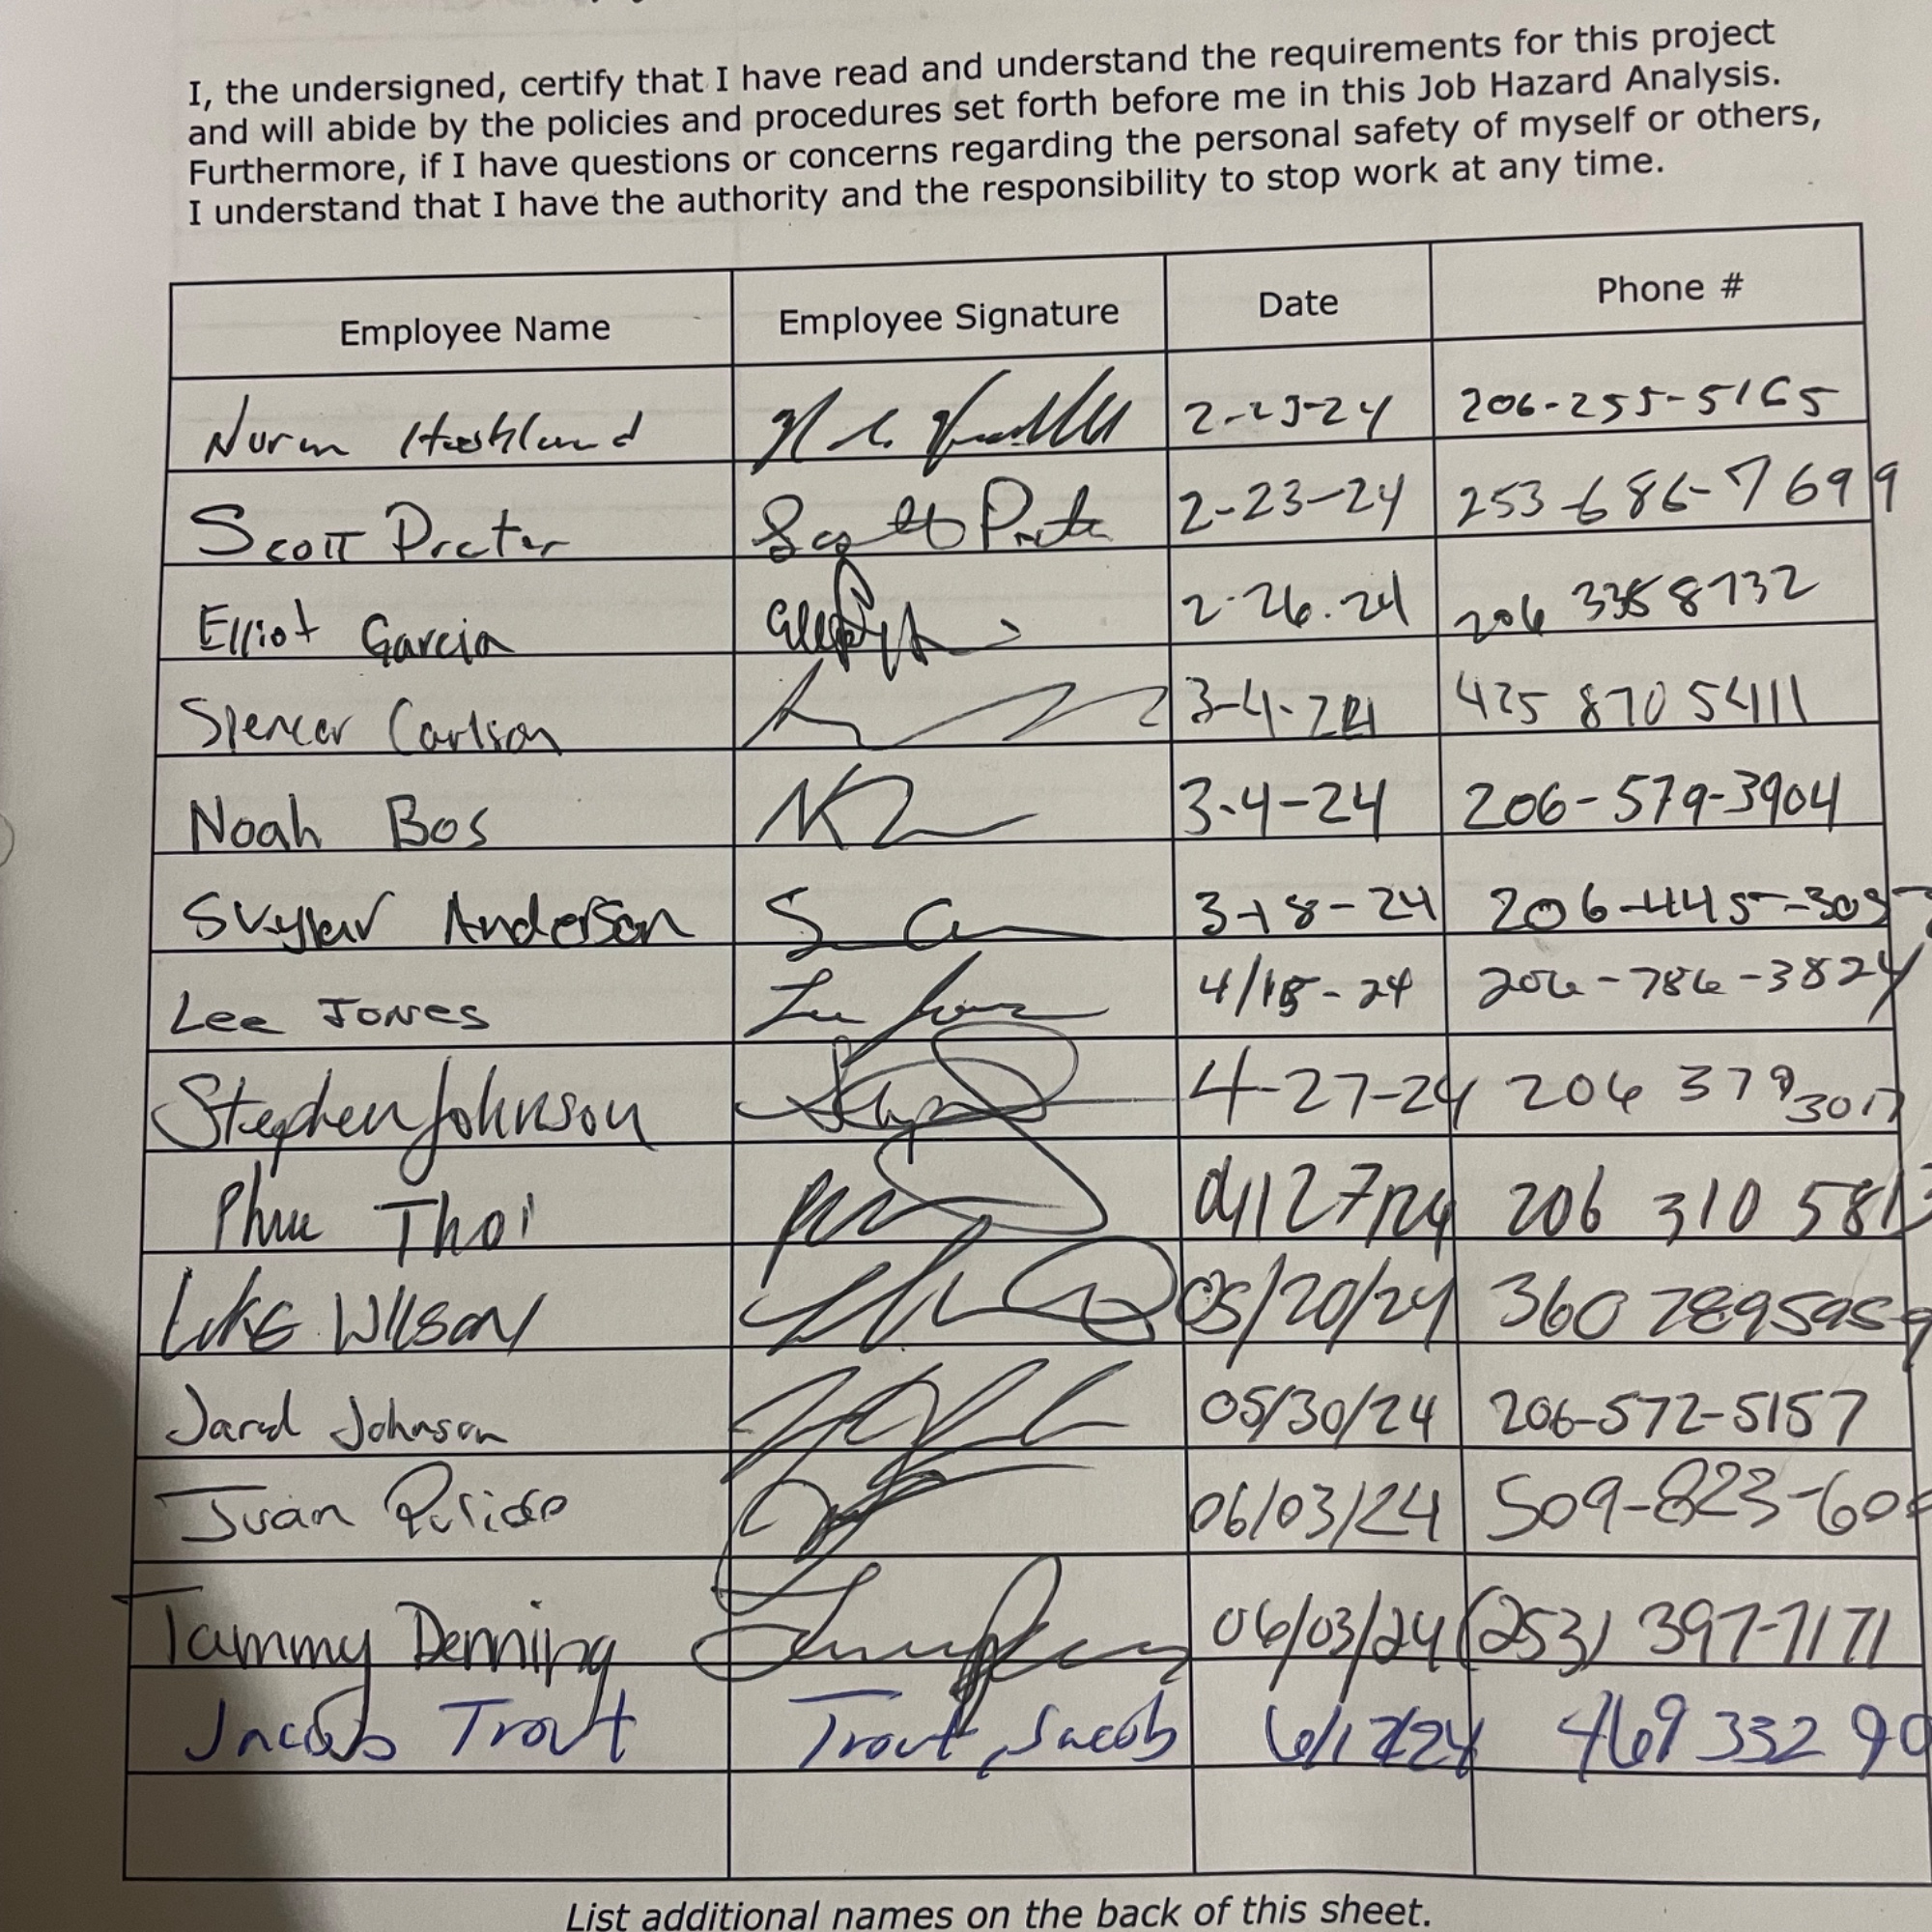 I, the undersigned, certify that I have read and understand the requirements for this project
and will abide by the policies and procedures set forth before me in this Job Hazard Analysis.
Furthermore, if I have questions or concerns regarding the personal safety of myself or others,
I understand that I have the authority and the responsibility to stop work at any time.
Employee Name Employee Signature Date Phone #
Norm 2-23-24 206-255-5165
Scott Procter Scott 2-23-24 253-686-7699
Elliot Garcia 2.26.24 206 8732
Spencer Carlson 3-4-24 425 870 5411
Noah Bos 3-4-24 206-579-3904
Skyler Anderson 3-18-24 206-445-
Lee Jones Lee Jones 206-786-3824
Stephen Johnson 4-27-24 206 379 3017
Phuc Thoi 04/27/24 206 310
Luke Wilson 05/20/24 360 7895959
Jared Johnson 05/30/24 206-572-5157
Juan Pulido 06/03/24 509-823-60
Tammy Denning 06/03/24 (253) 397-7171
Jacob Trout Trout, Jacob 469 332 90
List additional names on the back of this sheet.